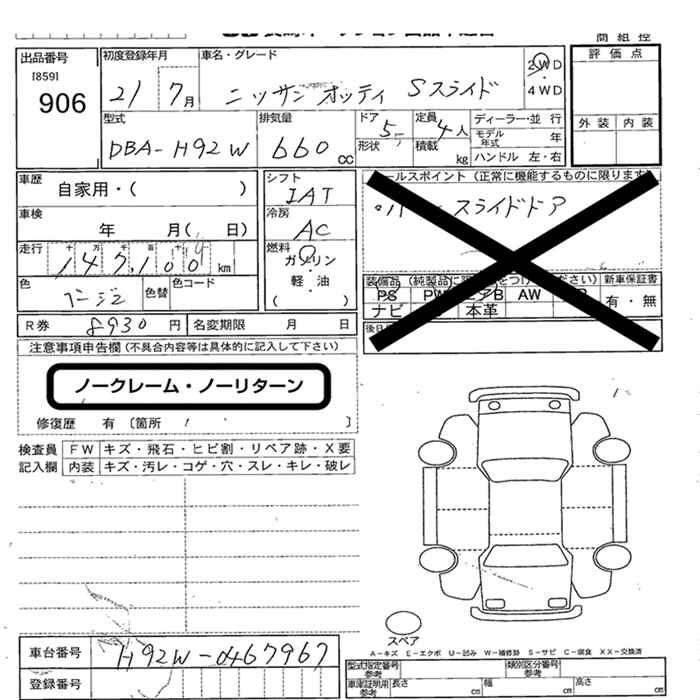 商組控
出品番号
[859]
906
初度登録年月
21年 7月
車名・グレード
ニッサン オッティ Sスライド
2WD
・
4WD
評価点
外装 内装
型式
DBA-H92W
排気量
660 cc
ドア 5
形状
定員 4人
積載 kg
ディーラー・並行
モデル年式 年
ハンドル 左・右
車歴
自家用・( )
車検
年 月( 日)
走行 十 万 千 百 十
147,100 km
色
ベージュ
色替
色コード
シフト
IAT
冷房
AC
燃料
ガソリン
・
軽・油
( )
セールスポイント (正常に機能するものに限ります)
スライドドア
装備品
新車保証書
PS PW AW
ナビ 本革
有・無
R券 8930 円
名変期限 月 日
注意事項申告欄 (不具合内容等は具体的に記入して下さい)
ノークレーム・ノーリターン
修復歴 有 〔箇所 〕
検査員
記入欄
FW キズ・飛石・ヒビ割・リペア跡・X要
内装 キズ・汚レ・コゲ・穴・スレ・キレ・破レ
スペア
A-キズ E-エクボ U-凹み W-補修跡 S-サビ C-腐食 XX-交換済
車台番号
H92W-0467967
登録番号
型式指定番号 参考
類別区分番号 参考
車庫証明用 参考
長さ cm
幅 cm
高さ cm